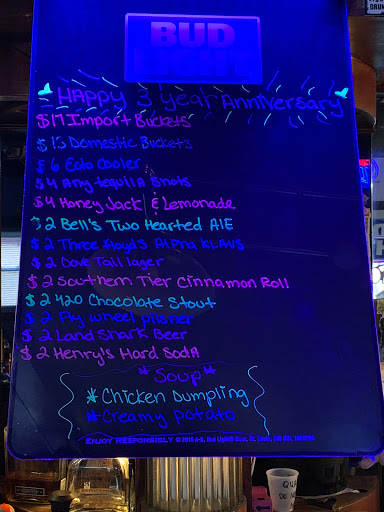 BUD
LIGHT
HAPPY 3 year Anniversary
$17 Import Buckets
$ 13 Domestic Buckets
$ 6 Ecto Cooler
$ 4 Any tequila shots
$4 Honey Jack & Lemonade
$ 2 Bell's Two Hearted AlE
$ 2 Three floyds Alpha KLAUS
$ 2 Dove Tail lager
$ 2 Southern Tier Cinnamon Roll
$ 2 420 Chocolate Stout
$ 2 Fly wheel pilsner
$ 2 Land Shark Beer
$ 2 Henry's Hard SodA
*Soup*
*Chicken Dumpling
*Creamy potato
ENJOY RESPONSIBLY © 2015 A-B, Bud Light® Beer, St. Louis, MO